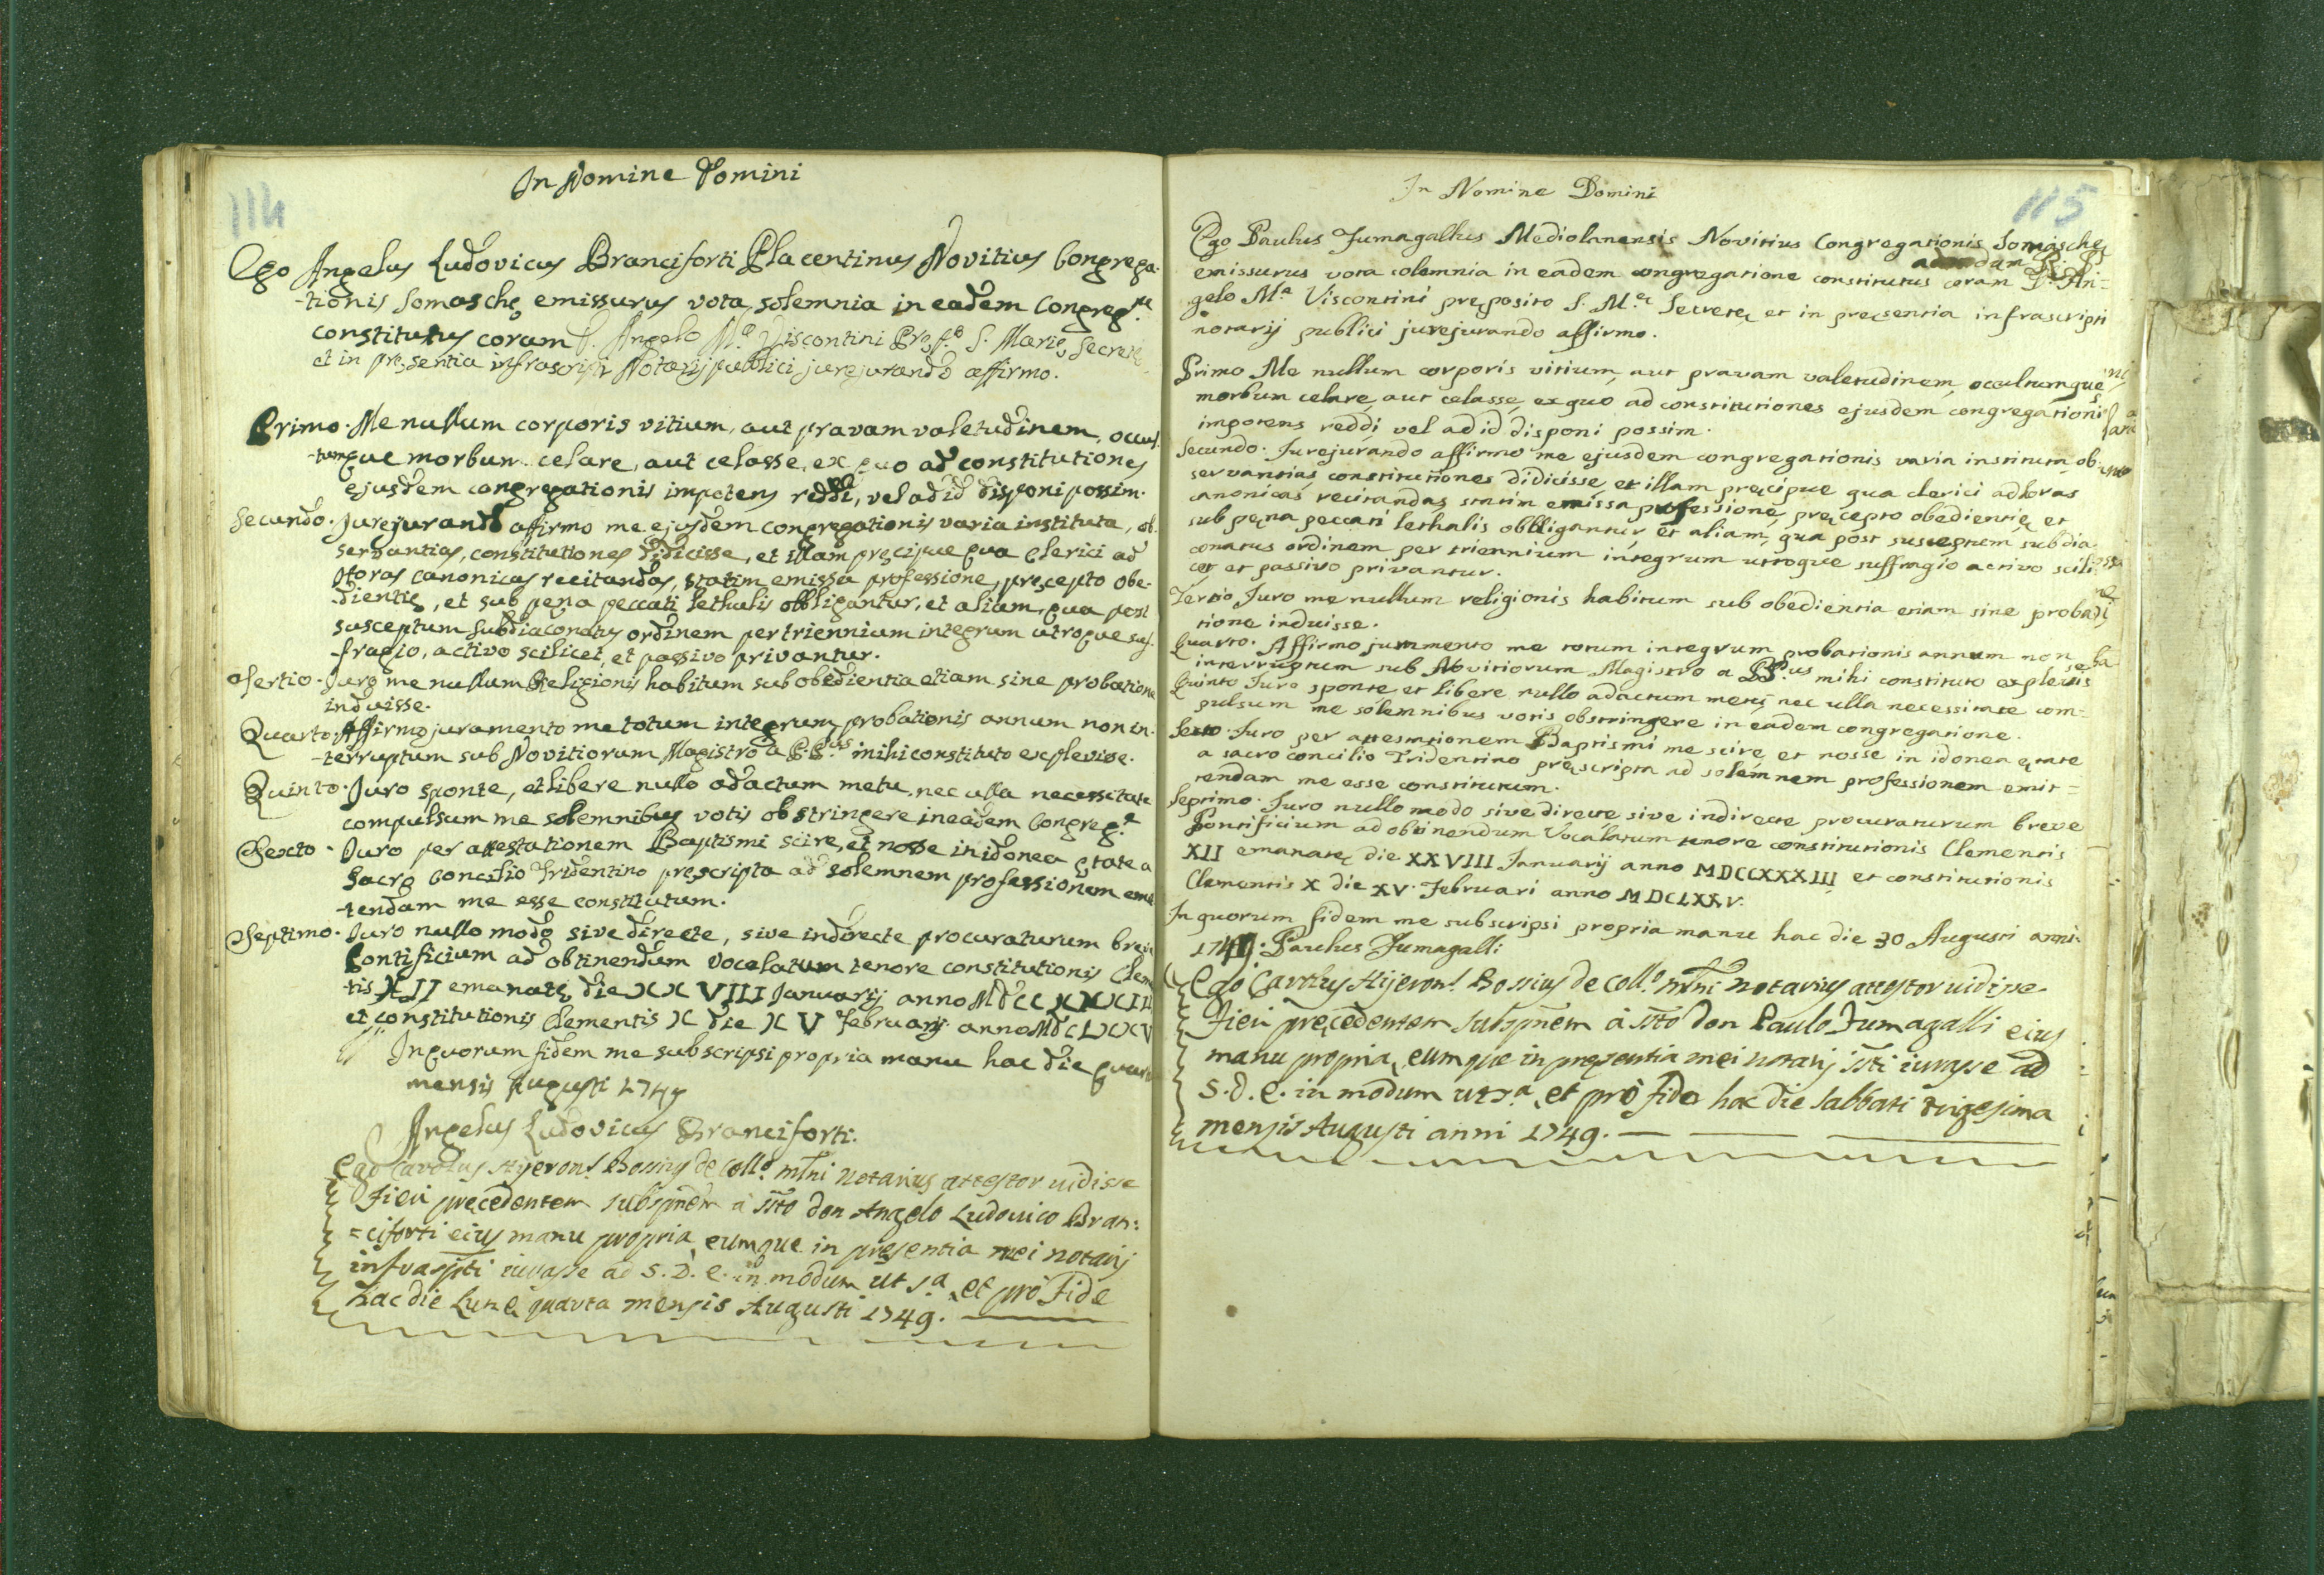 114
In Nomine Domini
Ego Angelus Ludovicus Branciforti Placentinus Novitius Congrega-
-tionis Somaschę emissurus vota solemnia in eadem Congreg.ne
constitutus coram P. Angelo M.a Viscontini Pręp.o S. Marię Secretę
et in pręsentia infrascripti Notarij publici jurejurando affirmo.
Primo. Me nullum corporis vitium, aut pravam valetudinem, occul-
-tumque morbum celare, aut celasse, ex quo ad constitutiones
ejusdem congregationis impotens reddi, vel ad id disponi possim.
Secundo. Jurejurando affirmo me ejusdem congregationis varia instituta, ob-
servantias, constitutiones didicisse, et illam pręcipue qua Clerici ad
Horas canonicas recitandas, statim emissa professione, pręcepto obe-
-dientię, et sub pęna peccati lethalis obbligantur, et aliam, qua post
susceptum Subdiaconatus ordinem per triennium integrum utroque suf-
-fragio, activo scilicet, et passivo privantur.
Tertio. Juro me nullum Religionis habitum sub obedientia etiam sine probatione
induisse.
Quarto. Affirmo juramento me totum integrum probationis annum non in-
-terruptum sub Novitiorum Magistro a P.P.us mihi constituto explevisse.
Quinto. Juro sponte, et libere nullo adactum metu, nec ulla necessitate
compulsum me solemnibus votis obstringere in eadem Congreg.e
Sexto. Juro per attestationem Baptismi scire, et nosse in idonea ętate a
Sacro Concilio Tridentino pręscripta ad solemnem professionem emit-
-tendam me esse constitutum.
Septimo. Juro nullo modo sive directe, sive indirecte procuraturum breve
Pontificium ad obtinendum Vocalatum tenore constitutionis Clemen-
tis XII emanatę die XXVIII Januarij anno MDCCXXXIII
et constitutionis Clementis X die XV Februarij anno MDCLXXV
In quorum fidem me subscripsi propria manu hac die quarta
mensis Augusti 1749
Angelus Ludovicus Branciforti.
Ego Carolus Hijeron.s Bossius de Coll.o mlni notarius attestor uidisse
Fieri precedentem subspnem a ssto don Angelo Ludouico Bran:
=ciforti eius manu propria, eumque in presentia mei notarij
infraspti iurasse ad S. D. E. in modum ut s.a, et pro Fide
hac die Lunę quarta mensis Augusti 1749.
115
In Nomine Domini
Ego Paulus Fumagallus Mediolanensis Novitius Congregationis Somaschę
emissurus vota solemnia in eadem congregatione constitutus coram P. An=
gelo M.a Viscontini pręposito S. M.ę Secretę et in pręsentia infrascripti
notarij publici jurejurando affirmo.
Primo Me nullum corporis vitium, aut pravam valetudinem, occultumque
morbum celare, aut celasse, ex quo ad constitutiones ejusdem congregationis
impotens reddi, vel ad id disponi possim.
Secundo. Jurejurando affirmo me ejusdem congregationis varia instituta, ob-
servantias constitutiones didicisse, et illam pręcipue qua clerici ad horas
canonicas recitandas, statim emissa professione, pręcepto obedientię, et
sub pęna peccati lethalis obbligantur, et aliam, qua post susceptum subdia-
conatus ordinem per triennium integrum utroque suffragio activo scili-
cet et passivo privantur.
Tertio Juro me nullum religionis habitum sub obedientia etiam sine proba-
tione induisse.
Quarto. Affirmo juramento me totum integrum probationis annum non
interruptum sub Novitiorum Magistro a PP.us mihi constituto explevis
Quinto Juro sponte et libere nullo adactum metu, nec ulla necessitate com-
pulsum me solemnibus votis obstringere in eadem congregatione.
Sexto. Juro per attestationem Baptismi me scire, et nosse in idonea ętate
a sacro concilio Tridentino pręscripta ad solemnem professionem emit=
tendam me esse constitutum.
Septimo. Juro nullo modo sive directe, sive indirecte procuraturum breve
Pontificium ad obtinendum Vocalatum tenore constitutionis Clementis
XII emanatę die XXVIII Januarij anno MDCCXXXIII et constitutionis
Clementis X die XV. Februari anno MDCLXXV.
In quorum fidem me subscripsi propria manu hac die 30 Augusti anni
1749. Paulus Fumagalli
Ego Carolus Hijeron.s Bossius de Coll.o mlni notarius attestor uidisse
Fieri precedentem subspnem a ssto don Paulo Fumagalli eius
manu propria, eumque in presentia mei notarij ssti iurasse ad
S. D. E. in modum ut s.a, et pro fide hac die Sabbati trigesima
mensis Augusti anni 1749.